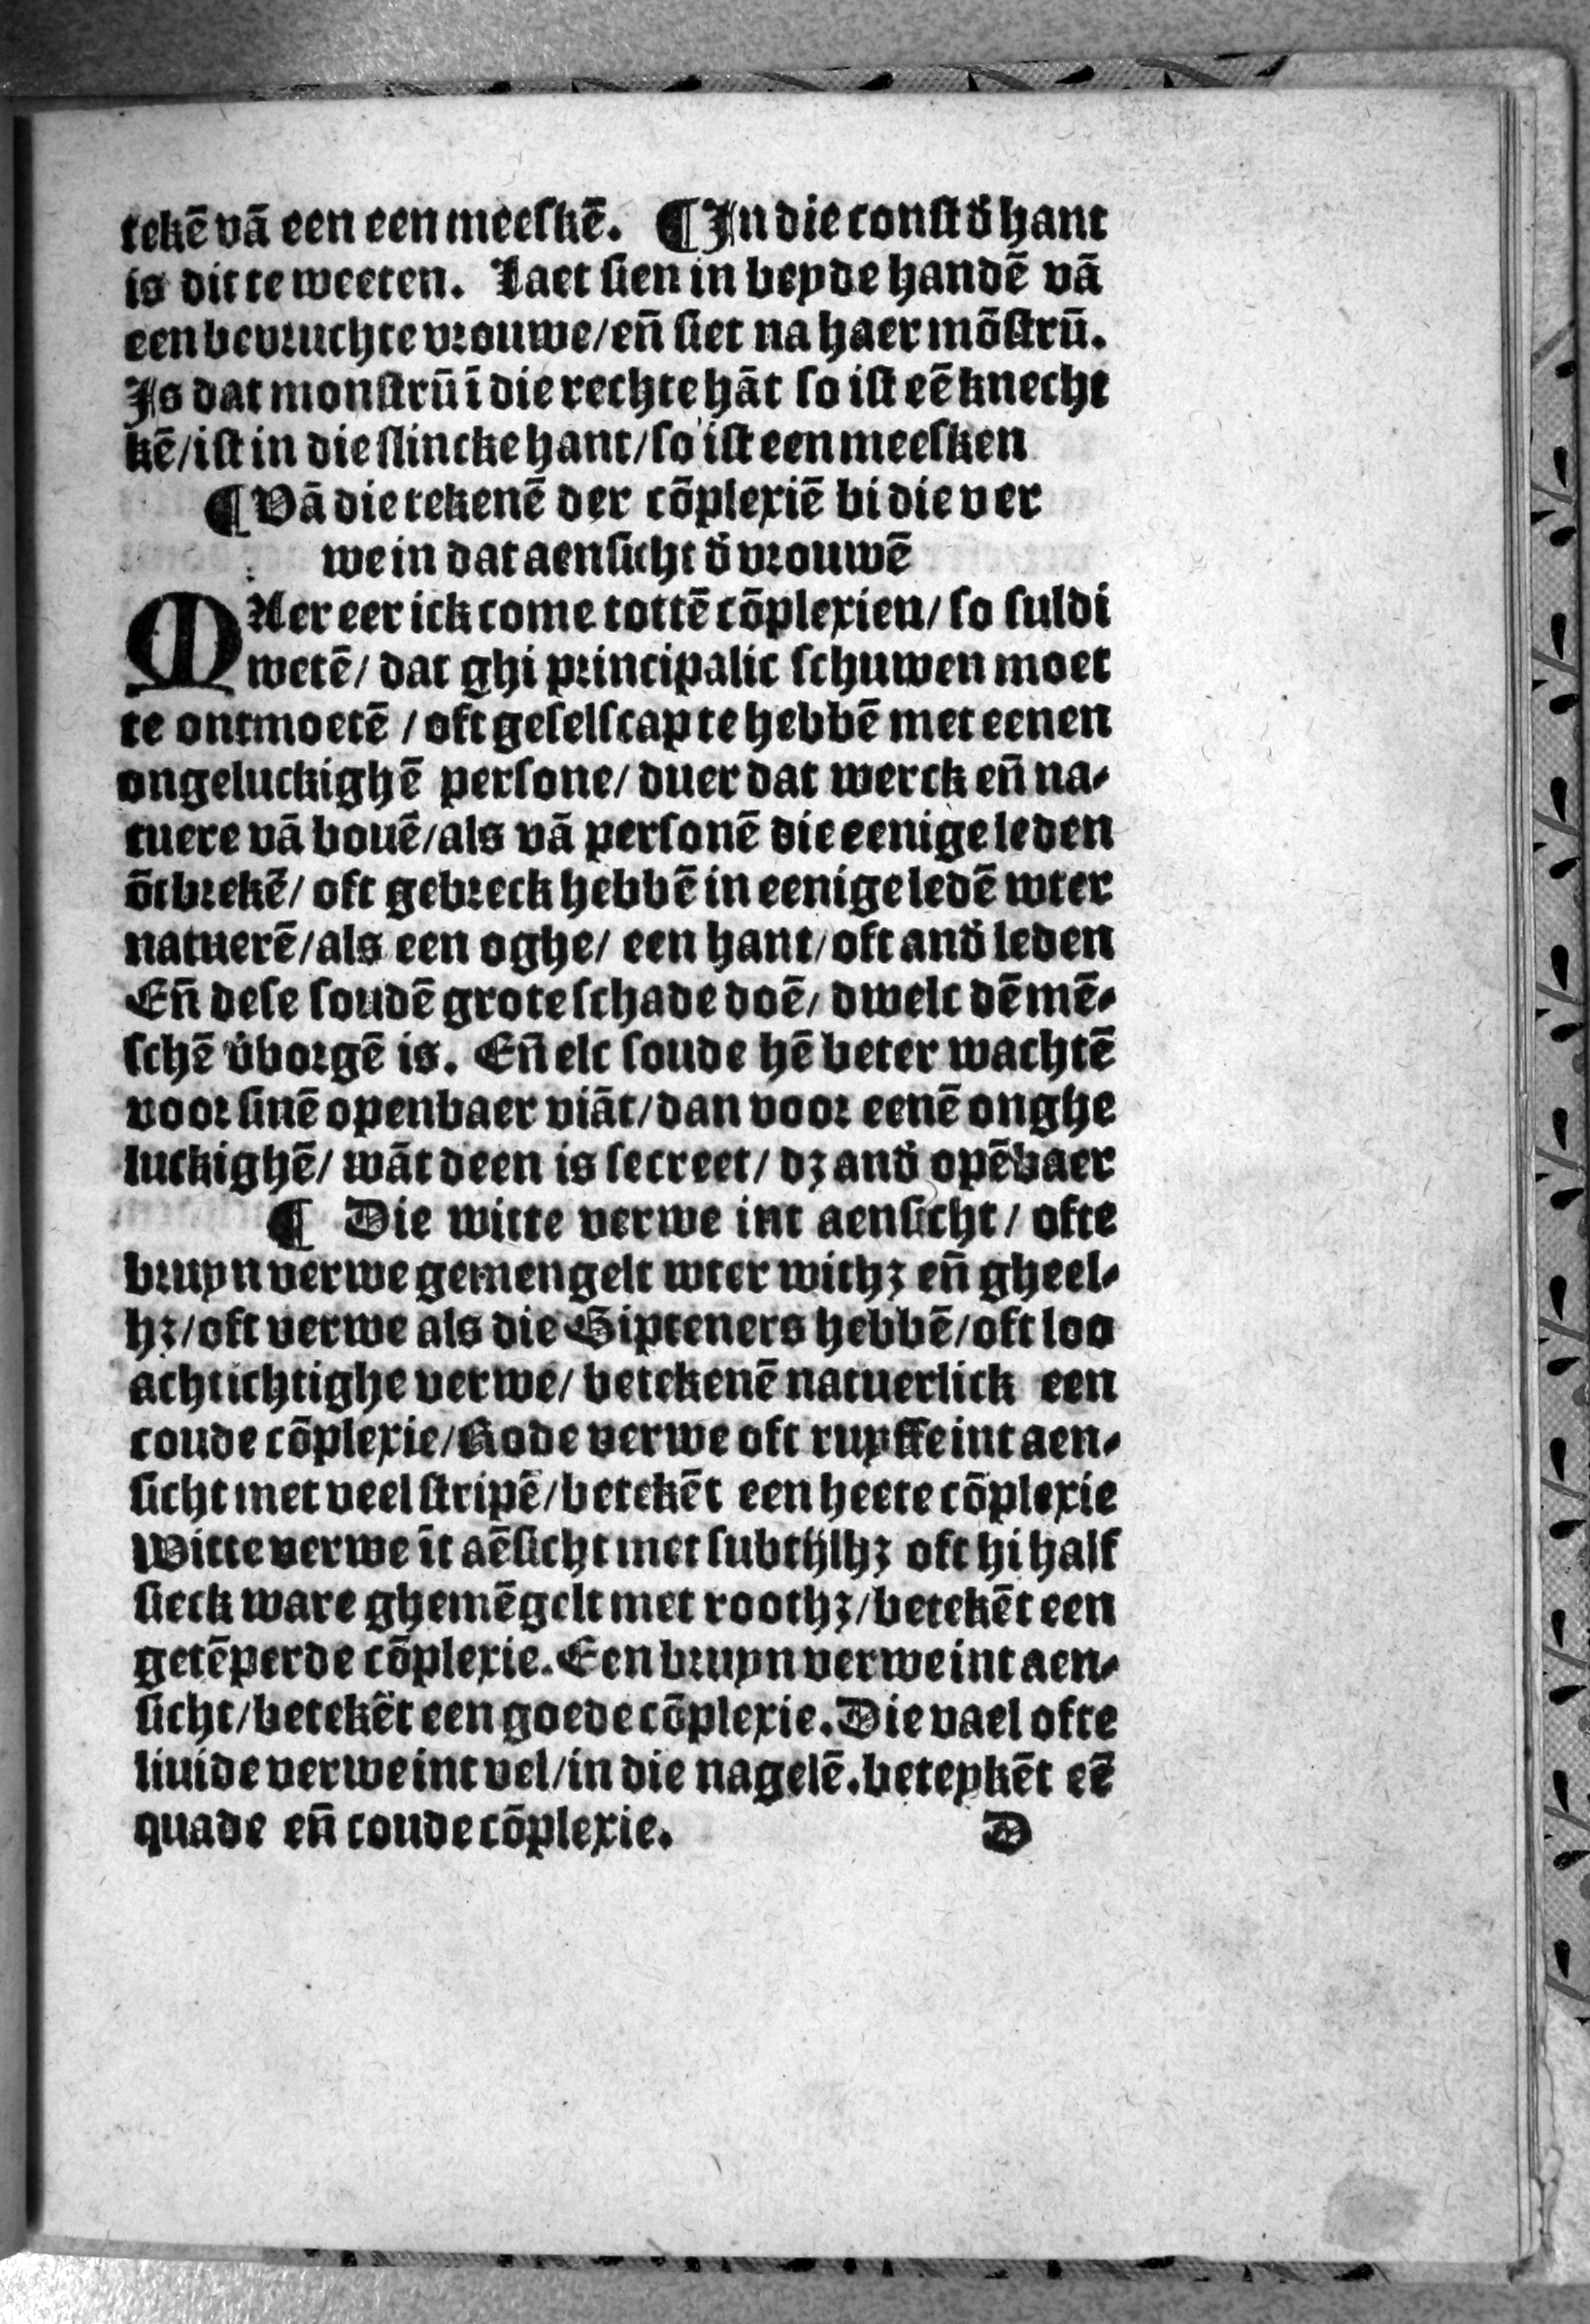 tekē vā een een meeskē. ¶ In die const d̄ hant
is dit te weeten. Laet sien in beyde handē vā
een bevruchte vrouwe/eñ siet na haer mōstrū.
Is dat monstrū ī die rechte hāt so ist eē knecht
kē/ist in die slincke hant/so ist een meesken
¶ Vā die tekenē der cōplexiē bi die ver
we in dat aensicht d̄ vrouwē
MAer eer ick come tottē cōplexien/ so suldi
wetē/ dat ghi principalic schuwen moet
te ontmoetē / oft geselscap te hebbē met eenen
ongeluckighē persone/ duer dat werck eñ na⸗
tuere vā bouē/als vā personē die eenige leden
ōtbrekē/ oft gebreck hebbē in eenige ledē wter
natuerē/als een oghe/ een hant/oft and̄ leden
Eñ dese soudē grote schade doē/ dwelc dē mē⸗
schē v̄borgē is. Eñ elc soude hē beter wachtē
voor sinē openbaer viāt/dan voor eenē onghe
luckighē/ wāt deen is secreet/ dz and̄ opēbaer
¶ Die witte verwe int aensicht/ ofte
bruyn verwe gemengelt wter withz eñ gheel⸗
hz/oft verwe als die Gipteners hebbē/oft loo
achtichtighe verwe/ betekenē natuerlick een
coude cōplexie/Rode verwe oft ruyffe int aen⸗
sicht met veel stripē/betekēt een heete cōplexie
Witte verwe īt aēsicht met subtijlhz oft hi half
sieck ware ghemēgelt met roothz/betekēt een
getēperde cōplexie. Een bruyn verwe int aen⸗
sicht/betekēt een goede cōplexie. Die vael ofte
liuide verwe int vel/in die nagelē.beteykēt eē
quade eñ coude cōplexie. D